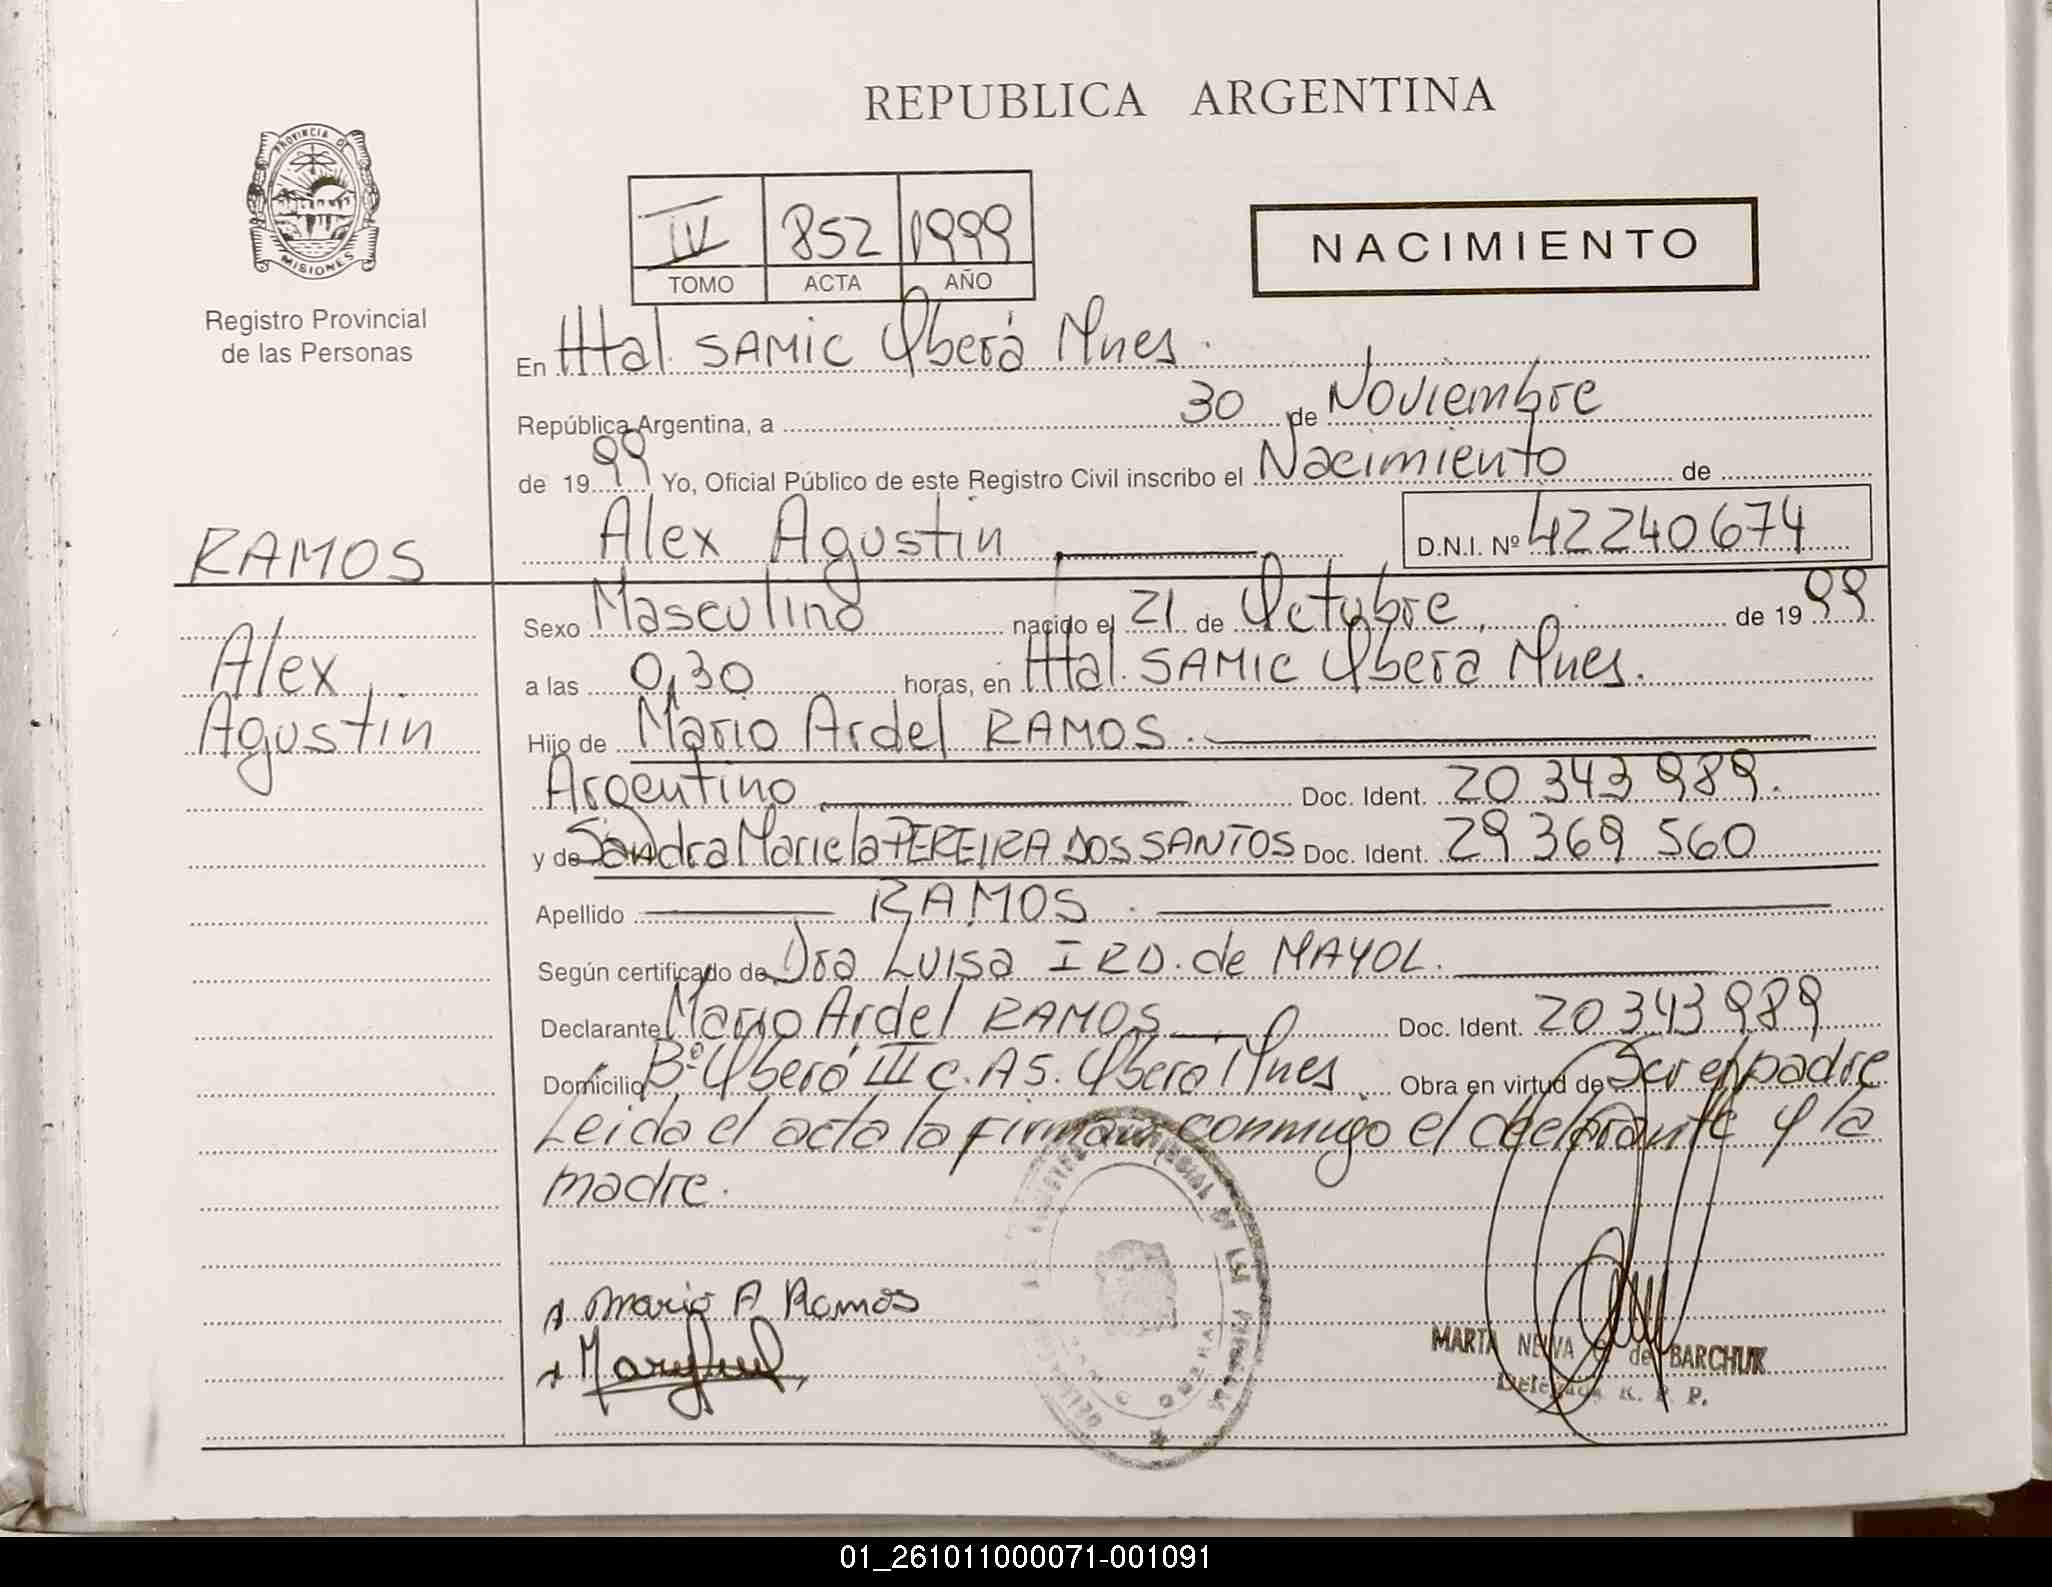 REPUBLICA ARGENTINA
PROVINCIA DE
MISIONES
Registro Provincial
de las Personas
IV 852 1999
TOMO ACTA AÑO
NACIMIENTO
En Htal. SAMIC Oberá Mnes.
República Argentina, a 30 de Noviembre
de 1999 Yo, Oficial Público de este Registro Civil inscribo el Nacimiento de
Alex Agustin D.N.I. Nº 42240674
RAMOS
Alex
Agustin
Sexo Masculino nacido el 21 de Octubre, de 1999
a las 0,30 horas, en Htal. SAMIC Obera Mnes.
Hijo de Mario Ardel RAMOS.
Argentino Doc. Ident. 20 343 989.
y de Sandra Mariela PEREIRA DOS SANTOS Doc. Ident. 29 369 560
Apellido RAMOS.
Según certificado de Dra Luisa I RD. de MAYOL.
Declarante Mario Ardel RAMOS Doc. Ident. 20 343 989
Domicilio Bº Oberá III C. A5. Obera Mnes Obra en virtud de Ser el padre
Leida el acta la firman conmigo el declarante y la
madre.
Mario A Ramos
MARTA NEIVA de BARCHUK
Delegada R. P. P.
01_261011000071-001091